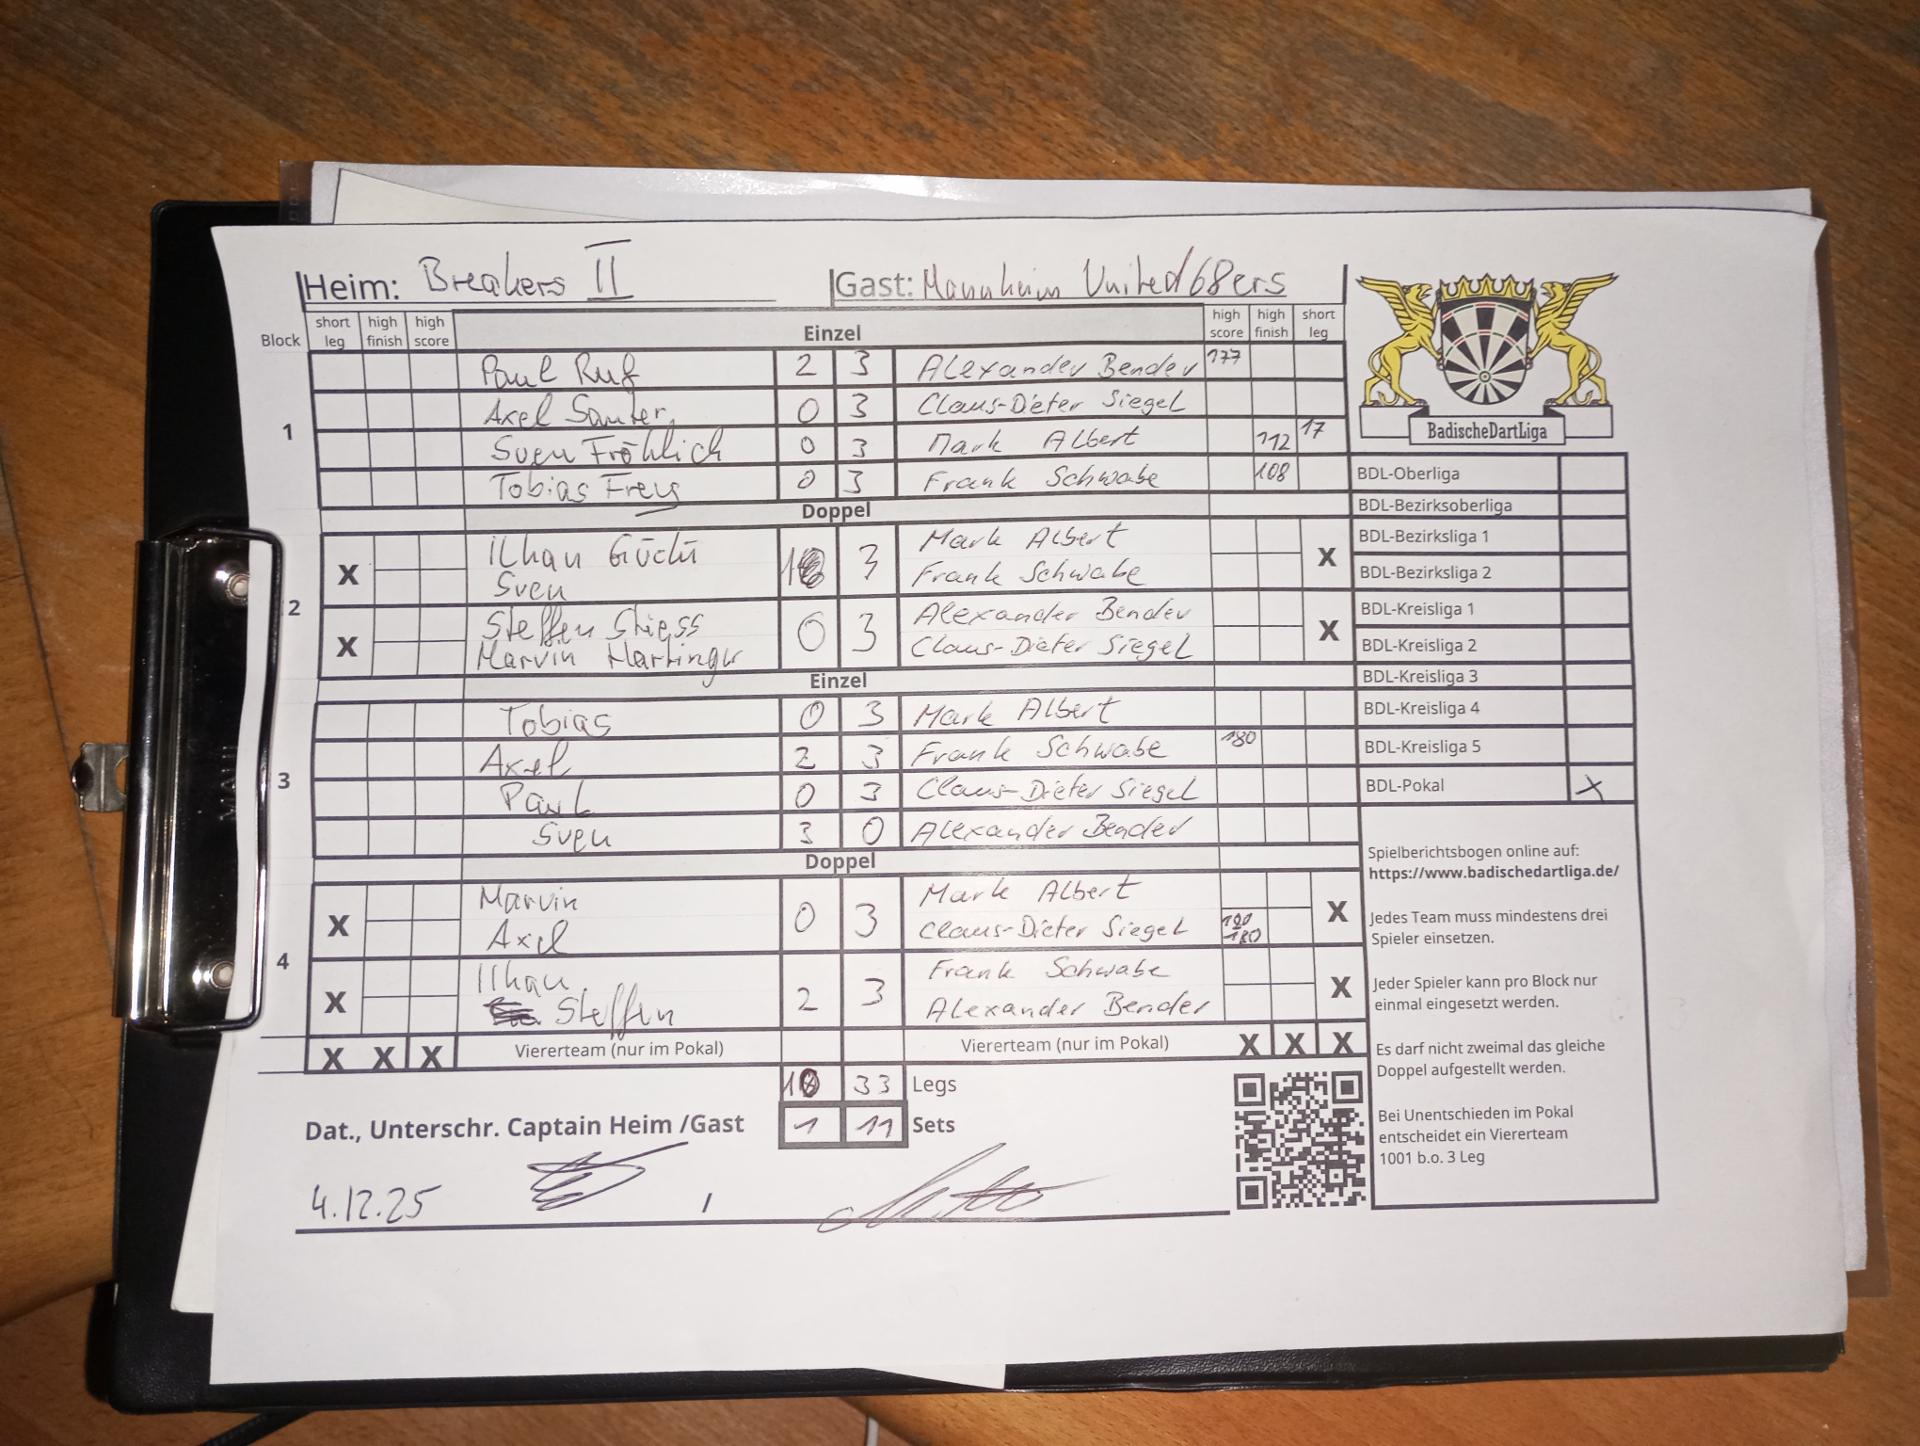 Heim: Breakers II Gast: Mannheim United 68ers
Block short leg high finish high score Einzel high score high finish short leg
1
Paul Ruf 2 3 Alexander Bender 177
Axel Sauter 0 3 Claus-Dieter Siegel
Sven Fröhlich 0 3 Mark Albert 112 17
Tobias Freys 0 3 Frank Schwabe 108
Doppel
2
X Ilhan 1 3 Mark Albert X
Sven Frank Schwabe
X Steffen Stiess 0 3 Alexander Bender X
Marvin Claus-Dieter Siegel
Einzel
3
Tobias 0 3 Mark Albert
Axel 2 3 Frank Schwabe 180
Paul 0 3 Claus-Dieter Siegel
Sven 3 0 Alexander Bender
Doppel
4
X Marvin 0 3 Mark Albert X
Axel Claus-Dieter Siegel 180
X Ilhan 2 3 Frank Schwabe X
Steffen Alexander Bender
X X X Viererteam (nur im Pokal) Viererteam (nur im Pokal) X X X
33 Legs
1 11 Sets
Dat., Unterschr. Captain Heim /Gast
4.12.25 /
BadischeDartLiga
BDL-Oberliga
BDL-Bezirksoberliga
BDL-Bezirksliga 1
BDL-Bezirksliga 2
BDL-Kreisliga 1
BDL-Kreisliga 2
BDL-Kreisliga 3
BDL-Kreisliga 4
BDL-Kreisliga 5
BDL-Pokal X
Spielberichtsbogen online auf:
https://www.badischedartliga.de/
Jedes Team muss mindestens drei
Spieler einsetzen.
Jeder Spieler kann pro Block nur
einmal eingesetzt werden.
Es darf nicht zweimal das gleiche
Doppel aufgestellt werden.
Bei Unentschieden im Pokal
entscheidet ein Viererteam
1001 b.o. 3 Leg